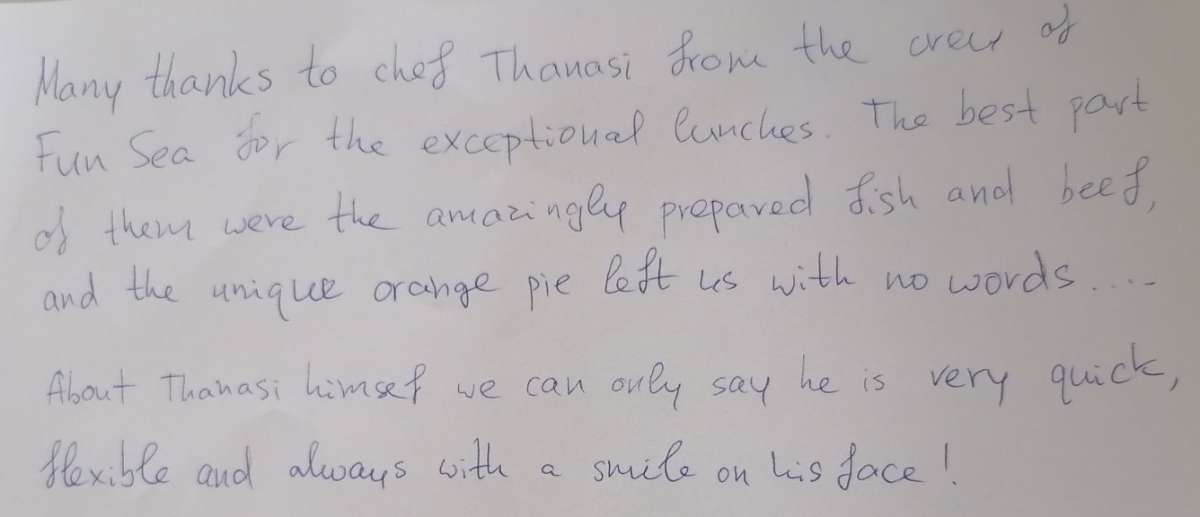 Many thanks to chef Thanasi from the crew of
Fun Sea for the exceptional lunches. The best part
of them were the amazingly prepared fish and beef,
and the unique orange pie left us with no words....
About Thanasi himsef we can only say he is very quick,
flexible and always with a smile on his face!